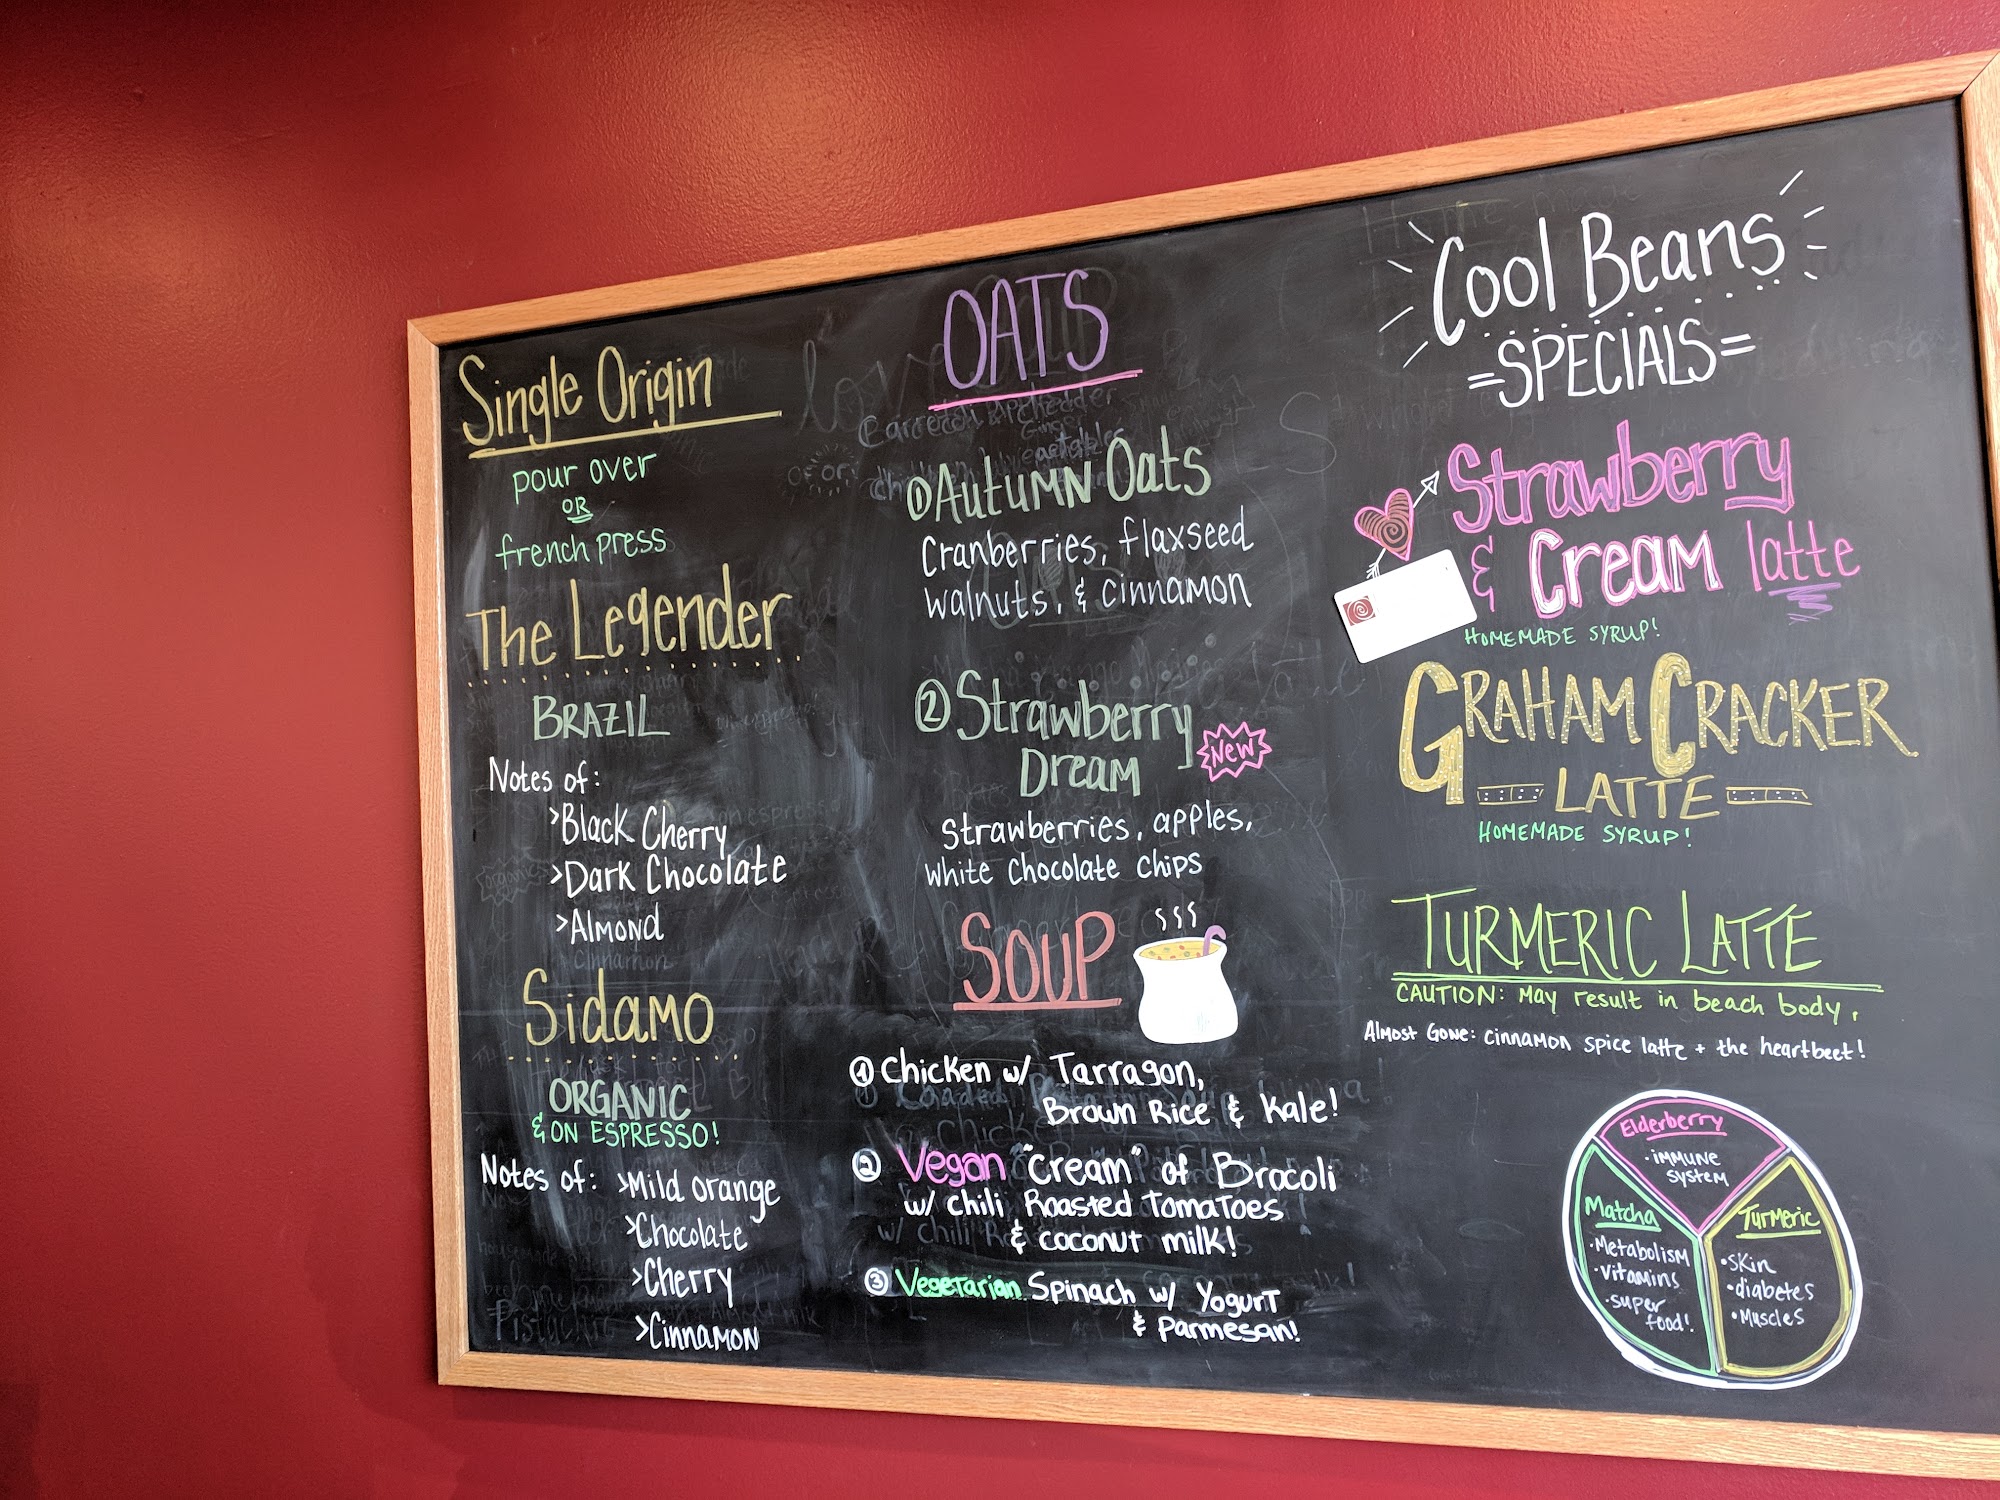 Single Origin
pour over
OR
french press
The Legender
BRAZIL
Notes of:
>Black Cherry
>Dark Chocolate
>Almond
Sidamo
ORGANIC
& ON ESPRESSO!
Notes of: >Mild orange
>Chocolate
>Cherry
>Cinnamon
OATS
① Autumn Oats
Cranberries, flaxseed
walnuts, & cinnamon
② Strawberry
Dream
New
Strawberries, apples,
White Chocolate Chips
SOUP
① Chicken w/ Tarragon,
Brown Rice & Kale!
② Vegan "cream" of Brocoli
w/ chili Roasted Tomatoes
& coconut milk!
③ Vegetarian Spinach w/ Yogurt
& Parmesan!
Cool Beans
=SPECIALS=
Strawberry
& Cream latte
HOMEMADE SYRUP!
GRAHAM CRACKER
LATTE
HOMEMADE SYRUP!
TURMERIC LATTE
CAUTION: May result in beach body.
Almost Gone: cinnamon spice latte + the heartbeet!
Elderberry
· immune
system
Matcha
· Metabolism
· vitamins
· super
food!
Turmeric
• skin
• diabetes
• Muscles